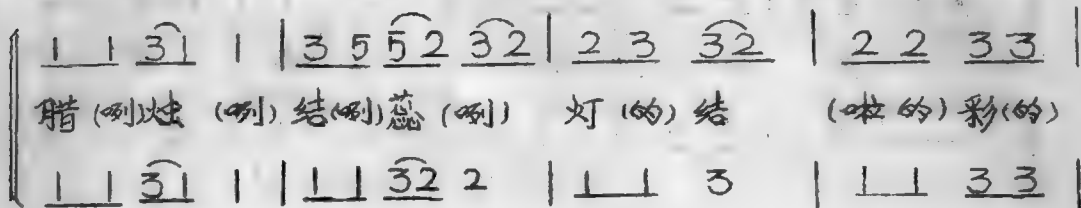 1 1 3 1 1 | 3 5 5 2 3 2 | 2 3 3 2 | 2 2 3 3 |
腊(咧)烛 (咧) 结(咧)蕊 (咧) 灯 (的) 结 (啦 的) 彩(的)
1 1 3 1 1 | 1 1 3 2 2 | 1 1 3 | 1 1 3 3 |